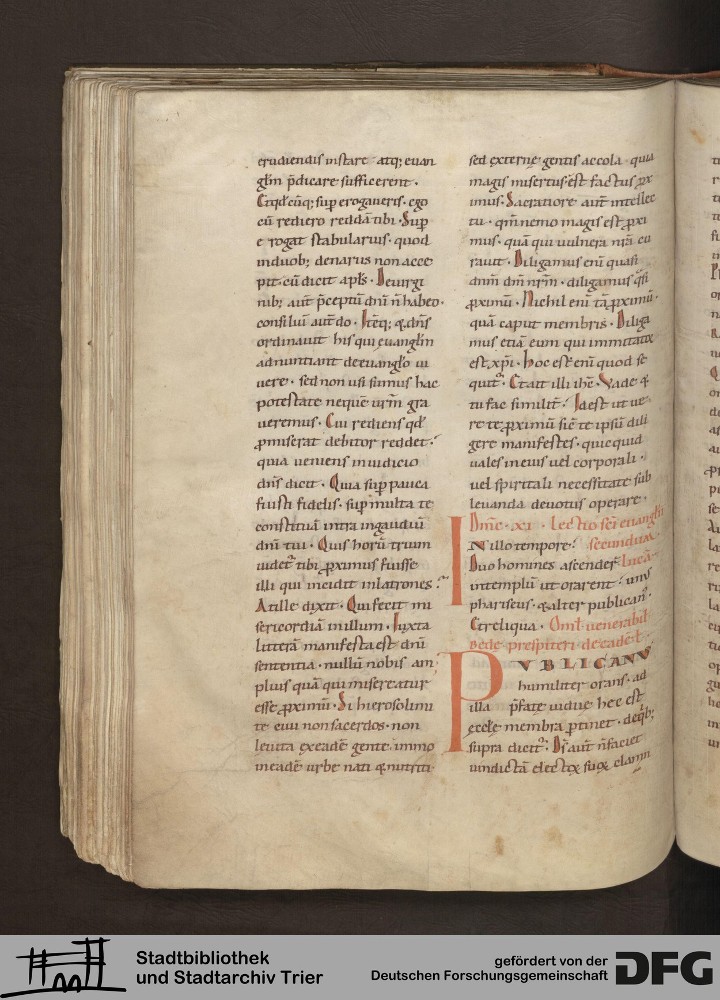 erudiendis instare atq; euan
glm p̄dicare sufficerent.
Et qdcūq; sup erogaueris. ego
cū rediero reddā tibi. Sup
e rogat stabularius. quod
induob; denarus non acce
pit. cū dicit apl̄s. De uirgi
nib; aut̄ p̄ceptū dn̄i n̄ habeo.
consiliū aut̄ do. Itēq; & dn̄s
ordinauit his qui euangl̄m
adnuntiant de euangl̄o ui
uere. sed non usi sumus hac
potestate neque urm̄ gra
uaremus. Cui rediens qd̄
ꝓmiserat debitor reddet.
quia ueniens in iudicio
dn̄s dicit. Quia sup pauca
fuisti fidelis. sup multa te
constituā intra in gaudiū
dn̄i tui. Quis horū trium
uidet̄ tibi ꝓximus fuisse
illi qui incidit in latrones?
At ille dixit. Qui fecit mi
sericordiā in illum. Iuxta
litterā manifesta est dn̄i
sententia. nullū nobis am
plius quā qui misereatur
esse ꝓximū. Si hierosolimi
te ciui non sacerdos. non
leuita ex eadē gente. immo
in eadē urbe nati & nutriti
sed externę gentis accola. quia
magis misertus est factus ꝓx
imus. Sacratiore aut̄ intellec
tu. qm̄ nemo magis est ꝓxi
mus. quā qui uulnera nr̄a cu
rauit. Diligamus eni quasi
dnm̄ dm̄ nr̄m. diligamus qsi
ꝓximū. Nichil eni tā ꝓximū.
quā caput membris. Diliga
mus etiā eum qui immitator
est xp̄i. hoc est eni quod se
quit̄. Et ait illi ih̄c. Vade &
tu fac similit̄. Id est ut ue
re te ꝓximū sic̄ te ipsū dili
gere manifestes. quicquid
uales in eius uel corporali.
uel spiritali necessitate sub
leuanda deuotus operare.
Dn̄ic. xi. Lectio sc̄i euanglii
IN illo tempore. secundum
Duo homines ascender̄ lucā
in templū ut orarent. unus
phariseus. & alter publican̄.
Et reliqua. Oml̄ uenerabil̄
bede prespiteri de eadē l̄
PVBLICANVS
humiliter orans. ad
illa p̄fatę uiduę hec est
eccl̄e membra ꝑtinet. de qb;
supra dicit̄. Ds̄ aut̄ n̄ faciet
uindictā electoꝝ suoꝝ clamn
Stadtbibliothek
und Stadtarchiv Trier
gefördert von der
Deutschen Forschungsgemeinschaft
DFG